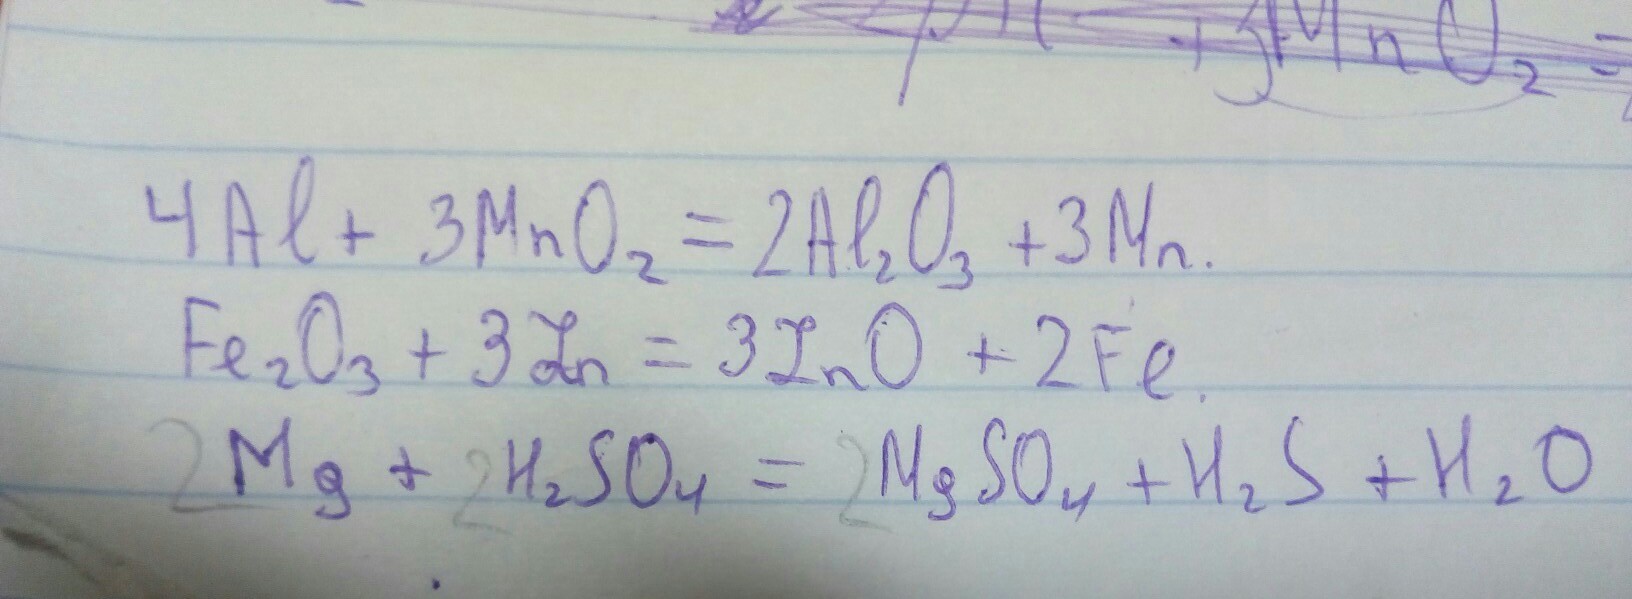 + 3MnO₂ =
4Al + 3MnO₂ = 2Al₂O₃ + 3Mn.
Fe₂O₃ + 3Zn = 3ZnO + 2Fe.
2Mg + 2H₂SO₄ = 2MgSO₄ + H₂S + H₂O